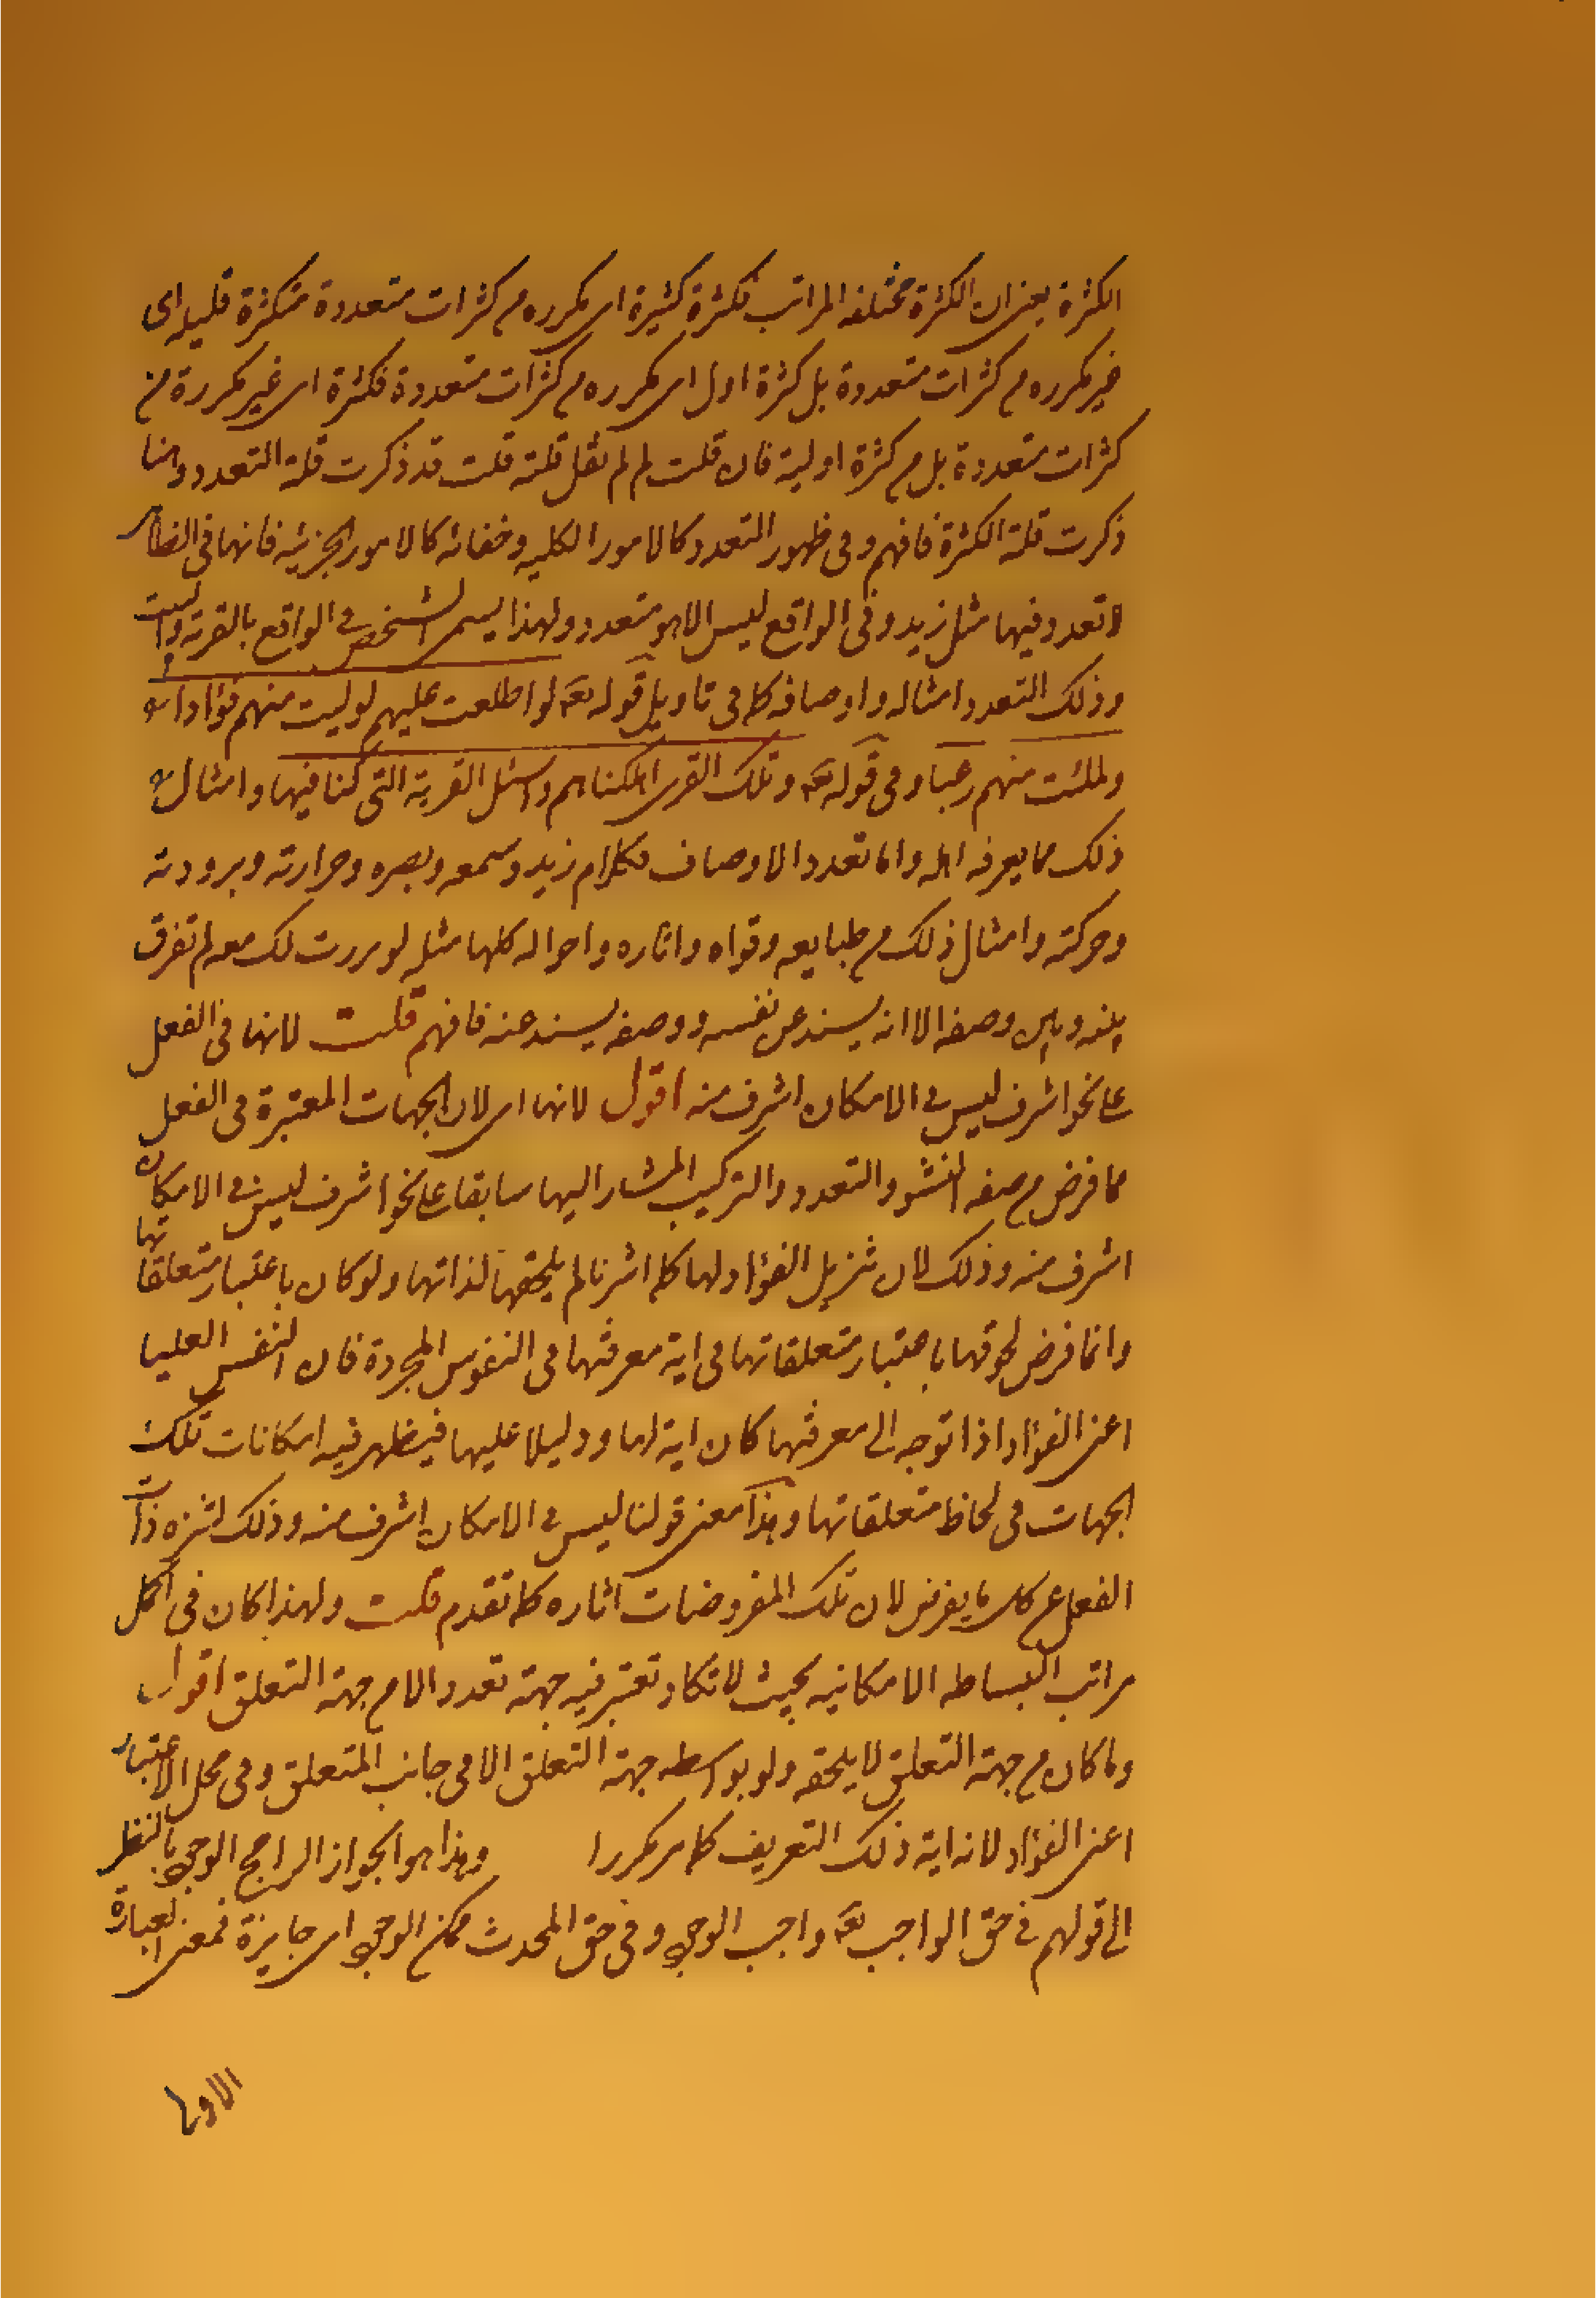 الكثرة بمعنى ان الكثرة مختلفه المراتب فكثرة كثيرة اى مكرره من كثرات متعددة فكثرة قليله اى
غير مكرره من كثرات متعددة بل كثرة اول اى مكرره من كثرات متعددة فكثرة اى غير مكررة من
كثرات متعددة بل من كثرة اولية فان قلت لم لم تقل قلته قلت قد ذكرت قلة التعدد وهنا
ذكرت قلة الكثرة فافهم وفى ظهور التعدد كالامور الكليه وخفائه كالامور الجزئيه فانها فى الظاهر
لا تعدد فيها مثل زيد وفى الواقع ليس الا هو متعدد ولهذا يسمى الشخص فى الواقع بالقرية والبيت
وذلك التعدد امثاله واوصافه كما فى تاويل قوله تعا لو اطلعت عليهم لوليت منهم فؤادا
ولملئت منهم رعبا وفى قوله تعا وتلك القرى اهلكناهم واسئل القرية التى كنا فيها وامثال
ذلك مما يعرفه اهله واما تعدد الاوصاف فكلام زيد وسمعه وبصره وحرارته وبرودته
وحركته وامثال ذلك من طبايعه وقواه واثاره واحواله كلها مثله لو مررت لك معه لم تفرق
بينه وبين وصفه الا انه يسند عن نفسه ووصفه يسند عنه فافهم قلت لانها فى الفعل
على نحو اشرف ليس فى الامكان اشرف منه اقول لانها اى لان الجهات المعتبرة فى الفعل
مما فرض من صفه النشو والتعدد والتركيب المشار اليها سابقا على نحو اشرف ليس فى الامكان
اشرف منه وذلك لان تنزيل الفؤاد لها كما اشرنا لم يلحقها لذاتها ولو كان باعتبار متعلقاتها
وانما فرض لحوقها باعتبار متعلقاتها فى اية معرفتها فى النفوس المجردة فان النفس العليا
اعنى الفؤاد اذا توجه الى معرفتها كان اية لها ودليلا عليها فيظهر فيه امكانات تلك
الجهات فى لحاظ متعلقاتها وهذا معنى قولنا ليس فى الامكان اشرف منه وذلك لتنزه ذات
الفعل عن كل ما يفرض لان تلك المفروضات اثاره كما تقدم قلت ولهذا كان فى اكمل
مراتب البساطه الامكانيه بحيث لا تكاد تعتبر فيه جهة تعدد الا من جهة التعلق اقول
وما كان من جهة التعلق لا يلحقه ولو بواسطه جهة التعلق الا فى جانب المتعلق وفى محل الاعتبار
اعنى الفؤاد لانه اية ذلك التعريف كما مر مكررا وهذا هو الجواز الراجح الوجود بالنظر
الى قولهم فى حق الواجب تعا واجب الوجود وفى حق المحدث ممكن الوجود اى جايزة فمعنى العبارة
الاولى